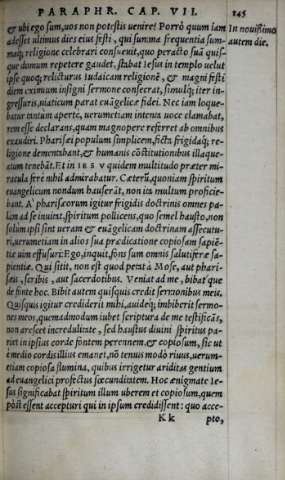 PARAPHR. CAP. VII. 145
& ubi ego sum, uos non potestis uenire! Porrò quum iam
adesset ultimus dies eius festi, qui summa frequentia sum-
maq; religione celebrari consueuit, quo peracto suã quis-
que domum repetere gaudet, stabat Iesus in templo uelut
ipse quoq; relicturus Iudaicam religionẽ, & magni festi
diem eximum insigni sermone consecrat, simulq; iter in-
gressuris, uiaticum parat euãgelicæ fidei. Nec iam loque-
batur tantum aperte, uerumetiam intenta uoce clamabat,
rem esse declarans, quam magnopere referret ab omnibus
exaudiri. Pharisæi populum simplicem, fictis frigidaq; re-
ligione demereebant, & humanis cõstitutionibus illaque-
atum tenebãt. Et in IESV quidem multitudo præter mi-
racula fere nihil admirabatur. Cæterũ, quoniam spiritum
euangelicum nondum hauserãt, non ita multum proficie-
bant. A' pharisæorum igitur frigidis doctrinis omnes pa-
lam ad se inuitat, spiritum pollicens, quo semel hausto, non
solum ipsi sint ueram & euãgelicam doctrinam assecutu-
ri, uerumetiam in alios sua prædicatione copiosam sapiẽ-
tiæ uim effusuri: Ego, inquit, fons sum omnis salutiferæ sa-
pientiæ. Qui sitit, non est quod petat à Mose, aut phari-
sæis, scribis, aut sacerdotibus. Veniat ad me, bibat que
de fonte hoc. Bibit autem quisquis credit sermonibus meis.
Quisquis igitur crediderit mihi, auideq; imbiberit sermo-
nes meos, quemadmodum iubet scriptura de me testificãs,
non arescet incredulitate, sed haustus diuini spiritus pa-
riet in ipsius corde fontem perennem, & copiosum, sic ut
è medio cordis illius emanet, nõ tenuis modò riuus, uerum-
etiam copiosa flumina, quibus irrigetur ariditas gentium
ad euangelici profectus fœcunditatem. Hoc ænigmate Ie-
sus significabat spiritum illum uberem et copiosum, quem
põst essent accepturi qui in ipsum credidissent: quo acce-
Kk pto,
In nouissimo
autem die.